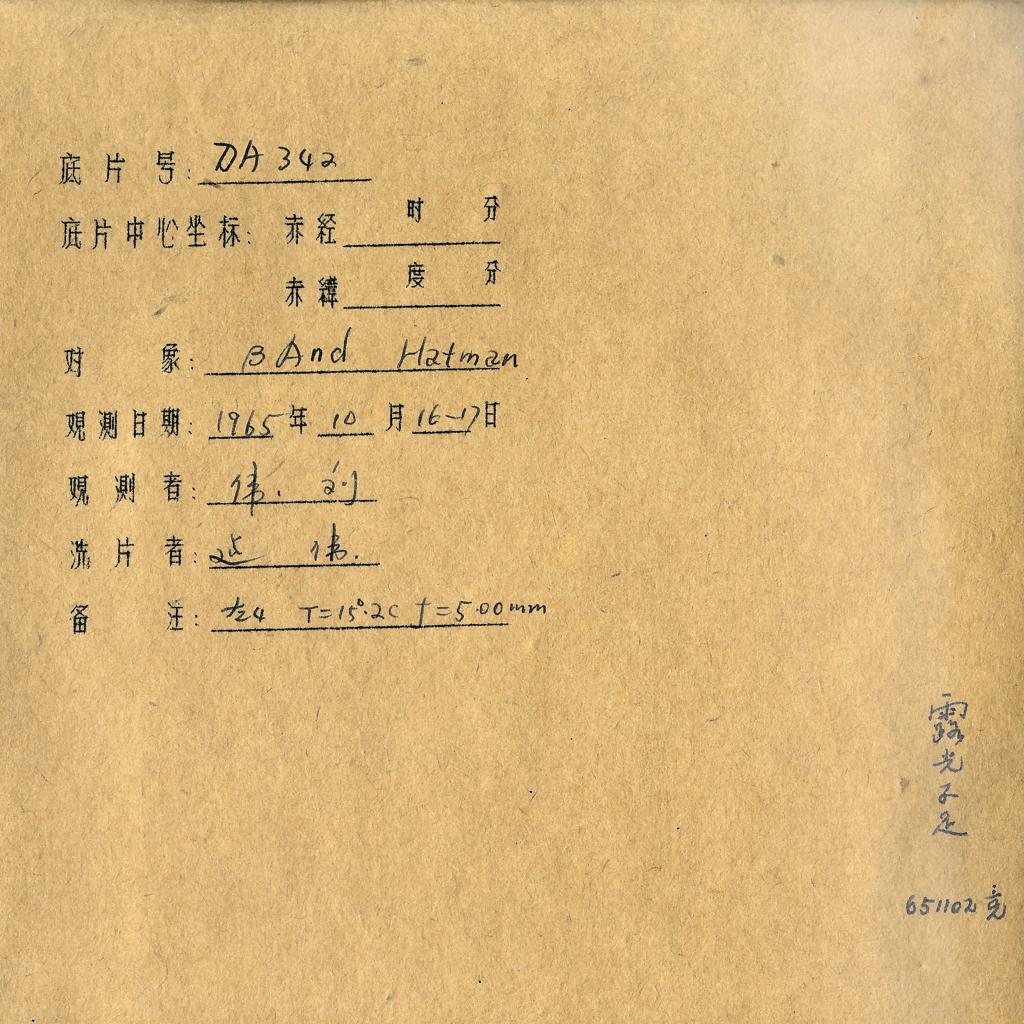 底片号: DA 342
底片中心坐标: 赤经 时 分
赤纬 度 分
对 象: β And Hatman
观测日期: 1965年 10 月 16-17日
观测者: 伟. 刘
洗片者: 延 伟.
备 注: T=15°.2C f=5.00mm
露光不足
651102 竞